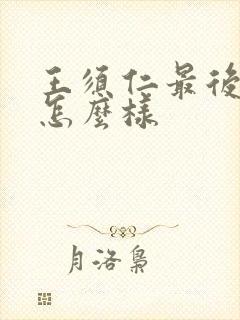 王須仁最後
怎麼樣
月洛梟